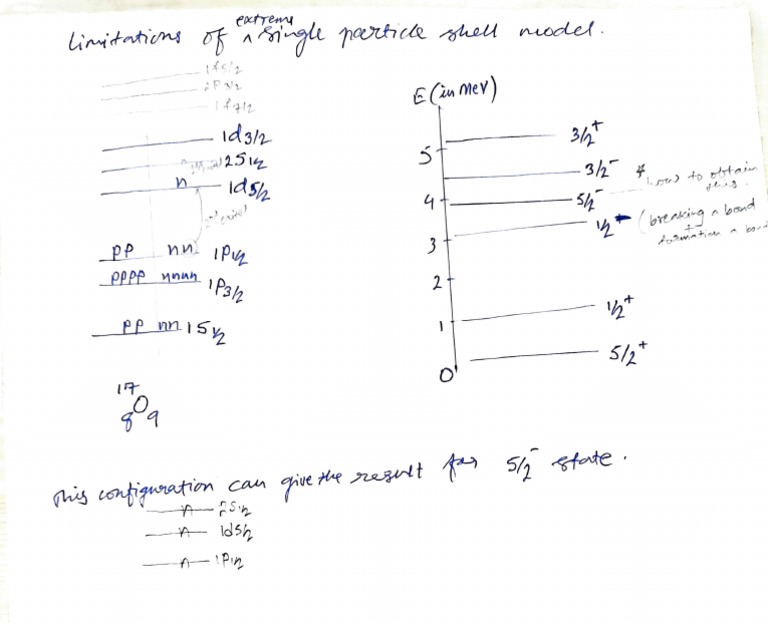 limitations of extreme single particle shell model.
1f5/2
2P3/2
1f7/2
1d3/2
2S1/2
n 1d5/2
PP nn 1P1/2
PPPP nnnn 1P3/2
PP nn 1S1/2
17
8O9
E (in MeV)
5 3/2+
3/2- * how to obtain this.
4 5/2-
1/2- (breaking a bond
+ formation a
3
2
1 1/2+
5/2+
0
This configuration can give the result for 5/2- state.
n 2S1/2
n 1d5/2
n 1P1/2